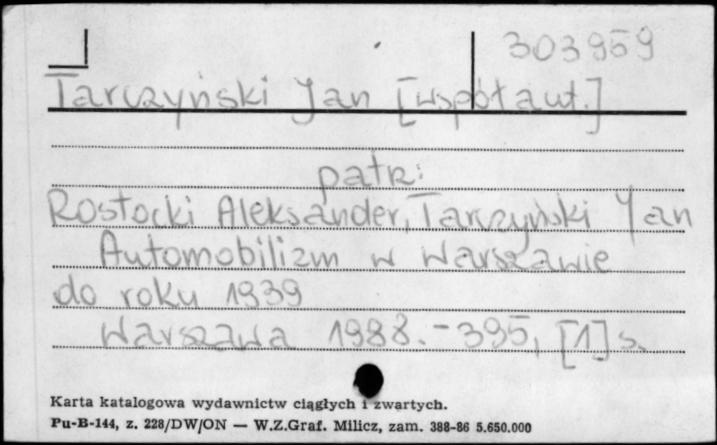 303959
Tarczyński Jan [współaut.]
patrz:
Rostocki Aleksander, Tarczyński Jan
Automobilizm w Warszawie
do roku 1939
Warszawa 1988. - 395, [1] s.
Karta katalogowa wydawnictw ciągłych i zwartych.
Pu-B-144, z. 228/DW/ON — W.Z.Graf. Milicz, zam. 388-86 5.650.000